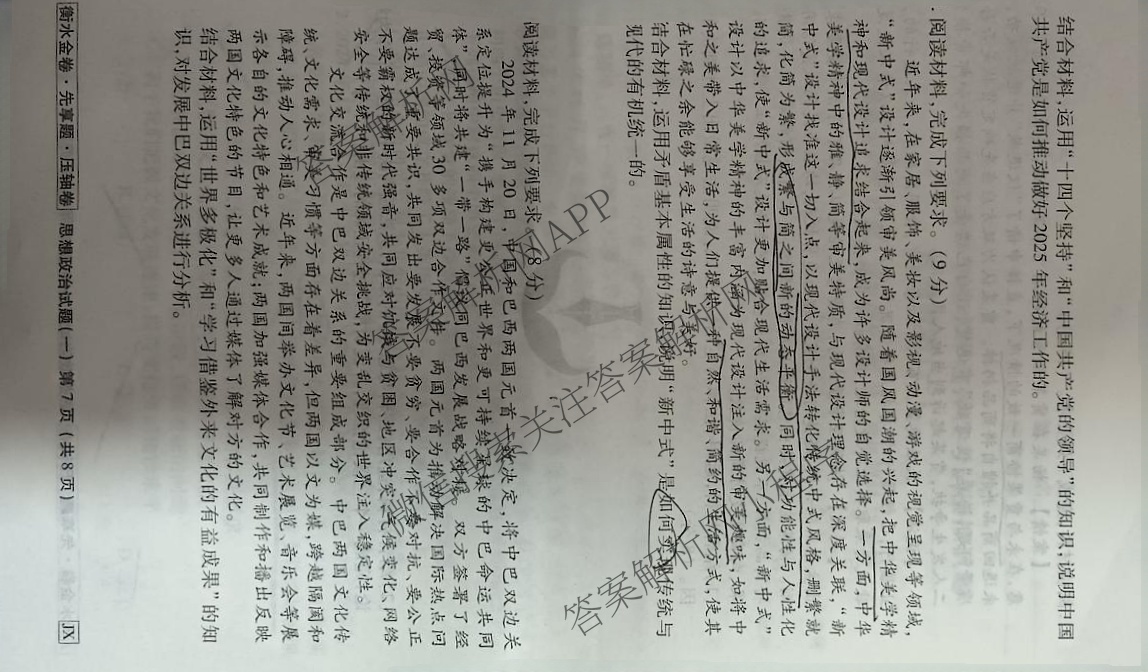 结合材料,运用“十四个坚持”和“中国共产党的领导”的知识,说明中国
共产党是如何推动做好2025年经济工作的。
.阅读材料,完成下列要求。(9分)
近年来,在家居、服饰、美妆以及影视、动漫、游戏的视觉呈现等领域,
“新中式”设计逐渐引领审美风尚。随着国风国潮的兴起,把中华美学精
神和现代设计追求结合起来,成为许多设计师的自觉选择。一方面,中华
美学精神中的雅、静、简等审美特质,与现代设计理念存在深度关联,“新
中式”设计找准这一切入点,以现代设计手法转化传统中式风格,删繁就
简,化简为繁,形成繁与简之间新的动态平衡,同时,对功能性与人性化
的追求,使“新中式”设计更加贴合现代生活需求。另一方面,“新中式”
设计以中华美学精神的丰富内涵为现代设计注入新的审美趣味,如将中
和之美带入日常生活,为人们提供一种自然、和谐、简约的生活方式,使其
在忙碌之余能够享受生活的诗意与美好。
结合材料,运用矛盾基本属性的知识,说明“新中式”是如何实现传统与
现代的有机统一的。
阅读材料,完成下列要求。(8分)
2024年11月20日,中国和巴西两国元首一致决定,将中巴双边关
系定位提升为“携手构建更公正世界和更可持续星球的中巴命运共同
体”,同时将共建“一带一路”倡议同巴西发展战略对接。双方签署了经
贸、投资等领域30多项双边合作文件。两国元首为推动解决国际热点问
题达成了重要共识,共同发出要发展不要贫穷、要合作不要对抗、要公正
不要霸权的新时代强音,共同应对饥饿与贫困、地区冲突、气候变化、网络
安全等传统和非传统领域安全挑战,为变乱交织的世界注入稳定性。
文化交流合作是中巴双边关系的重要组成部分。中巴两国文化传
统、文化需求、审美习惯等方面存在着差异,但两国以文为媒,跨越隔阂和
障碍,推动人心相通。近年来,两国间举办文化节、艺术展览、音乐会等展
示各自的文化特色和艺术成就;两国加强媒体合作,共同制作和播出反映
两国文化特色的节目,让更多人通过媒体了解对方的文化。
结合材料,运用“世界多极化”和“学习借鉴外来文化的有益成果”的知
识,对发展中巴双边关系进行分析。
衡水金卷·先享题·压轴卷 思想政治试题(一) 第7页(共8页) JX